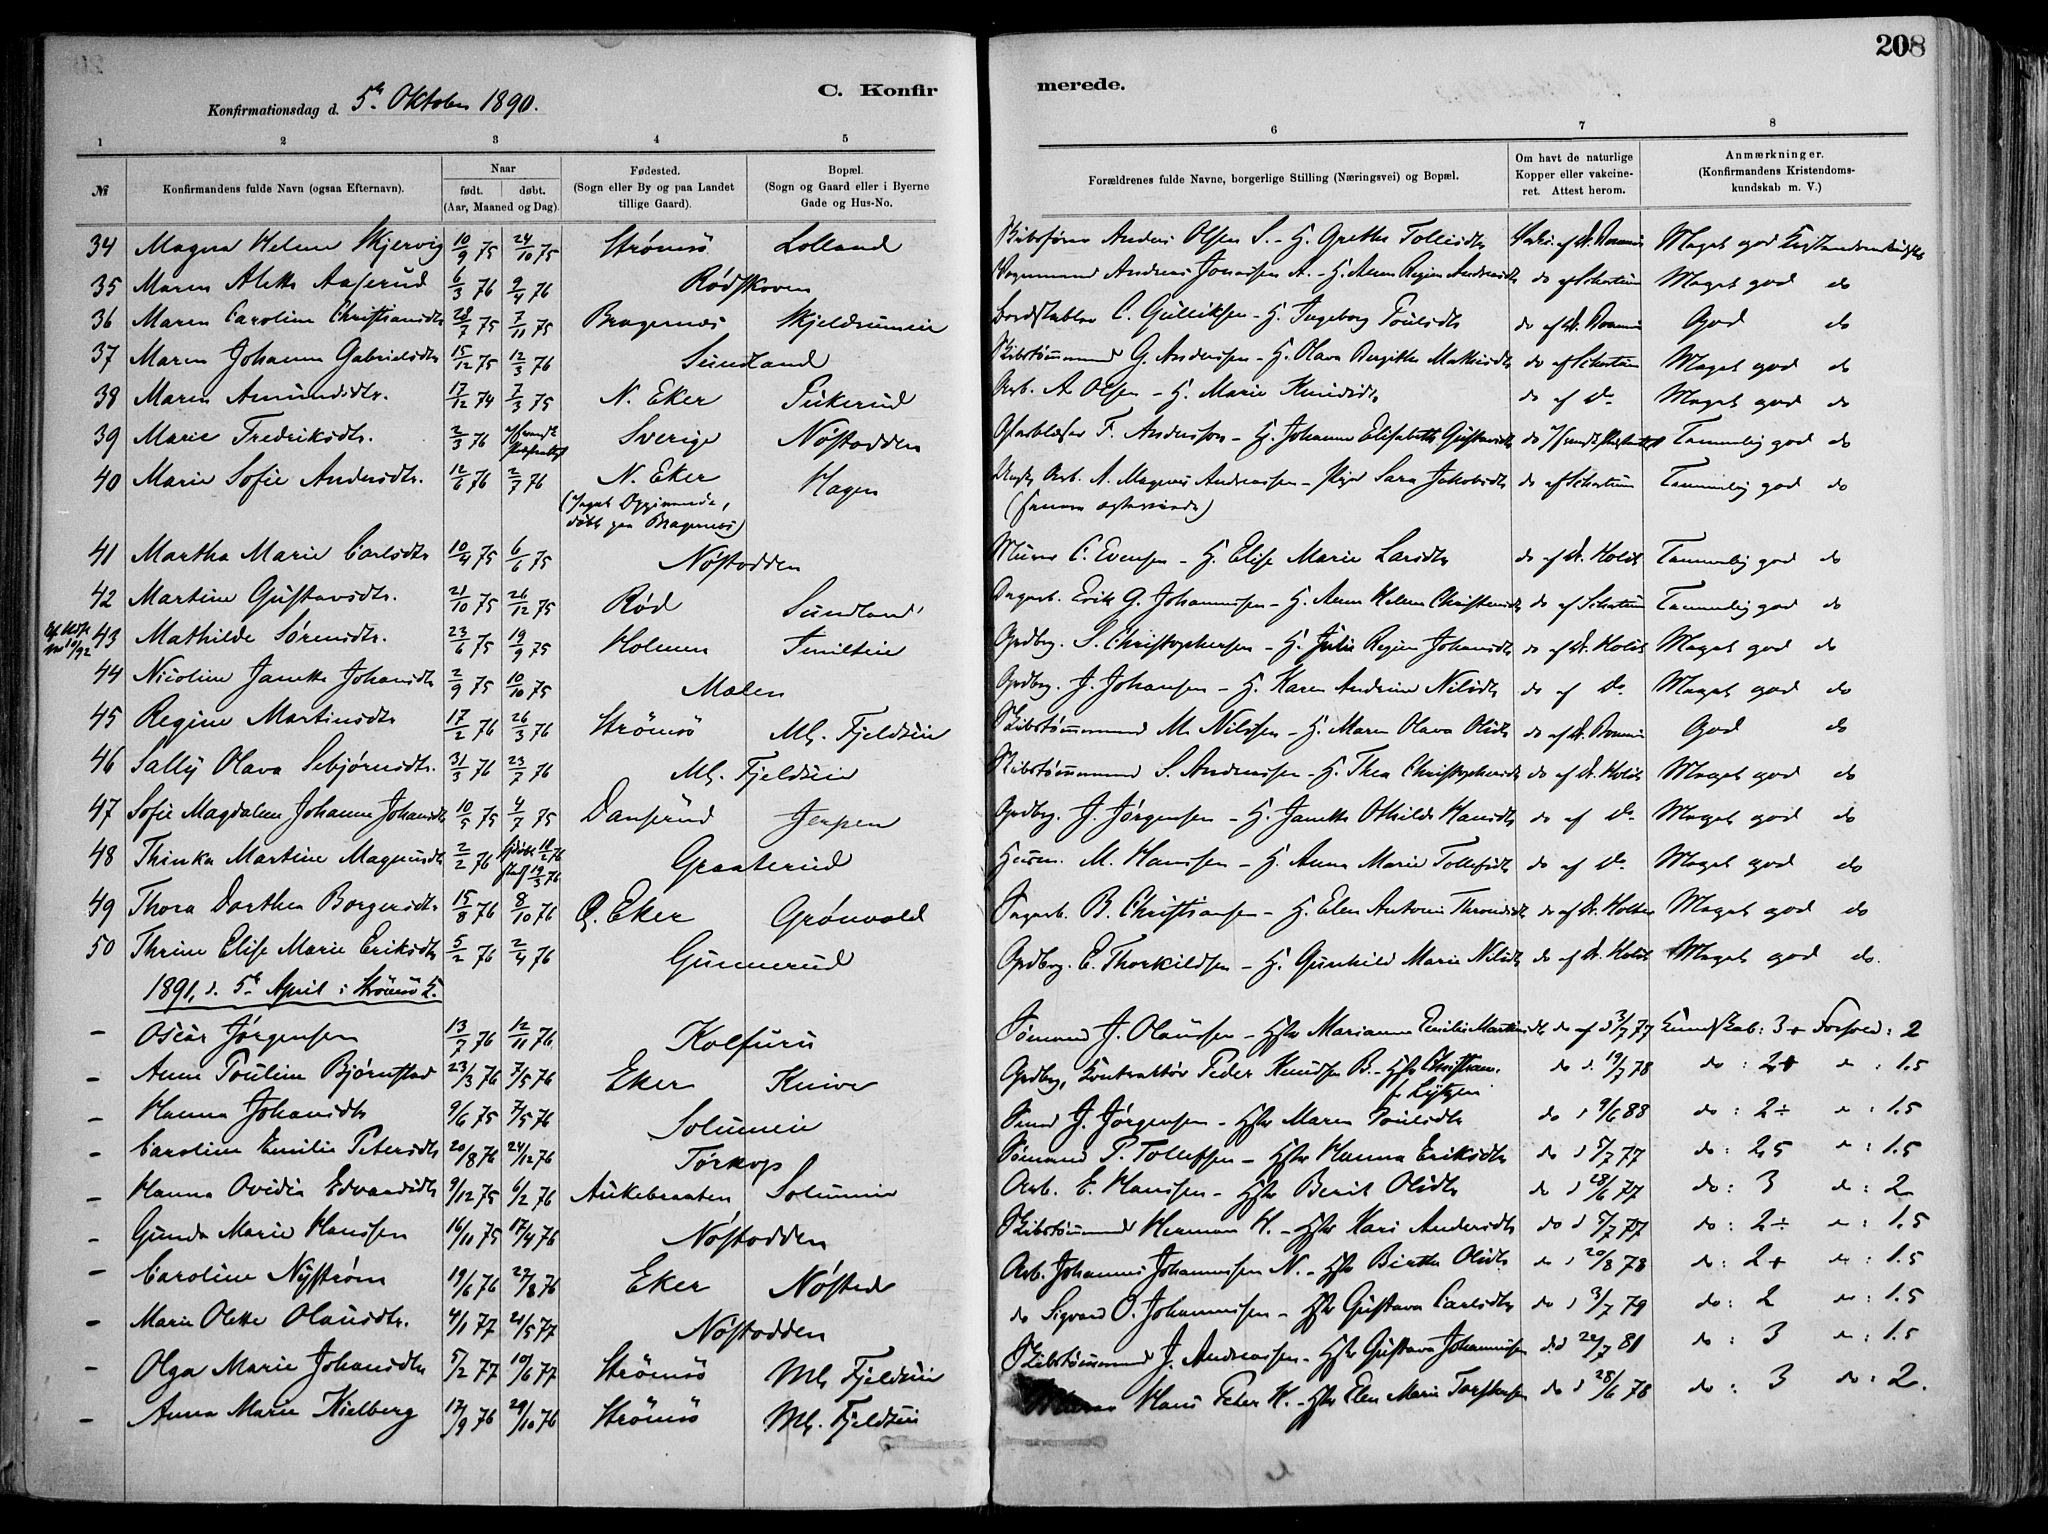 208
C. Konfirmerede.
Konfirmationsdag d. 5te Oktober 1890.
1 2 3 4 5 6 7 8
№ Konfirmandens fulde Navn (ogsaa Efternavn). Naar født. døbt. (Aar, Maaned og Dag). Fødested. (Sogn eller By og paa Landet tillige Gaard). Bopæl. (Sogn og Gaard eller i Byerne Gade og Hus-No. Forældrenes fulde Navne, borgerlige Stilling (Næringsvei) og Bopæl. Om havt de naturlige Kopper eller vakcineret. Attest herom. Anmærkninger. (Konfirmandens Kristendomskundskab m. V.)
34 Magna Helene Skjervig 10/9 75 24/10 75 Strømsø Lolland Skibsfører Anders Olsen S. - H. Grethe Tollisdtr Meget god Kristendomskundsk.
35 Maren Alette Aaserud 6/3 76 9/4 76 Rødskoven Vognmand Andreas Jonassen A. - H. Anne Regine Andreasdtr do af Schartum Meget god do
36 Maren Caroline Christiansdtr 28/7 75 7/11 75 Bragernæs Skjeldrumeie Bordstabler C. Gulliksen - H. Ingeborg Poulsdtr do af Dr. God do
37 Maren Johanne Gabrielsdtr 15/12 75 12/3 76 Sundland Skibstømmermand G. Andersen - H. Olava Birgitte Mathisdtr do af Schartum Meget god do
38 Maren Amundsdtr. 17/12 74 7/3 75 N. Eker Pukerud Arb. A Olsen - H. Marie Knudsdtr do af Do Meget god do
39 Marie Fredriksdtr. 2/3 76 Sverige Nøstodden Glasblæser F. Andersson - H. Johanne Elisabeth Gustavsdtr do Temmelig god do
40 Marie Sofie Andersdtr. 12/6 76 2/7 76 N. Eker Hagen Ungk. Arb. A. Magnus Andreassen - Pige Sara Jakobsdtr do af Schartum Temmelig god do
(Ifgt Opgivende, døbt paa Bragernæs) (senere ægteviede)
41 Martha Marie Carlsdtr 10/4 75 6/6 75 Nøstodden Murer C. Evensen - H. Elise Marie Larsdtr do af Dr. Holst Temmelig god do
42 Martine Gustavsdtr. 21/10 75 26/12 75 Rød Sundland Dagarb. Erik G. Johannessen - H. Anne Helene Christensdtr do af Schartum Temmelig god do
43 Mathilde Sørensdtr. 23/6 75 19/9 75 Holmen Tmilteie Grdbrg. S. Christophersen - H. Julie Regine Johansdtr do af Dr. Holst Meget god do
44 Nicoline Janette Johansdtr 2/9 75 10/10 75 Mælen Grdbrg. J. Johansen - H. Karen Andrine Nilsdtr do af Do Meget god do
45 Regine Martinsdtr 17/2 76 26/3 76 Strømsø Ml. Fjeldeie Skibstømmermand M. Nilssen - H. Maren Olava Olsdtr do af Dr. God do
46 Sally Olava Sebjørnsdtr. 31/3 76 23/7 76 Ml. Fjeldeie Skibstømmermand S. Andreassen - H. Thea Christophersdtr do af Dr. Holst Meget god do
47 Sofie Magdalene Johanne Johansdtr 10/5 75 4/7 75 Dansrud Jerpen Grdbrg. J. Jørgensen - H. Janette Othilde Hansdtr do af Do Meget god do
48 Thinka Martine Magnusdtr 2/2 76 Hjdøbt 18/2 76 stadf. 19/3 76 Graaterud Husm. M. Hanssen - H. Anna Marie Tollefsdtr do af Do Meget god do
49 Thora Dorthea Borgersdtr 15/8 76 8/10 76 Ø. Eker Grønvold Dagarb. B. Christiansen - H. Elen Antonie Throndsdtr do af Dr. Meget god do
50 Thrine Elise Marie Eriksdtr 5/2 76 2/4 76 Gunnerud Grdbrg. E. Thorkildsen - H. Gunhild Marie Nilsdtr do af Dr. Holst Meget god do.
1891, d. 5te April i Strømsø K.
- Oscar Jørgensen 13/7 76 12/11 76 Kolfuru Sømand J. Olaussen - Hstr Marianne Emilie Martinsdtr do af d 3/7 77 Kundskab: 3+ Forhold: 2
- Anne Pouline Bjørnstad 23/3 76 7/5 76 Eker Knive Grdbrg, Kontraktør Peder Knudsen B. - Hstr Christiane f. Lytzen do d. 19/7 78 do : 2+ do : 1.5
- Hanna Johansdtr 9/6 75 7/5 76 Solumeie J. Jørgensen - Hstr Maren Poulsdtr do d 9/6 88 do : 2÷ do : 1.5
- Caroline Emilie Petersdtr 20/8 76 24/12 76 Tørkop Sømand P. Tollefsen - Hstr Hanna Eriksdtr do d 5/7 77 do : 2,5 do : 1.5
- Hanna Ovidia Edvardsdtr 9/12 75 6/2 76 Aukebraaten Solumeie Arb. E. Hanssen - Hstr Berit Olsdtr do d 28/6 77 do : 3 do : 2
- Gunda Marie Hanssen 16/11 75 17/4 76 Nøstodden Skibstømmermd Herman H. - Hstr Kari Andersdtr do d 5/7 77 do : 2÷ do : 1.5
- Caroline Nystrøm 19/6 76 27/8 76 Eker Nøsted Arb. Johannes Johannessen N. - Hstr Birthe Olsdtr do d 20/8 78 do : 2+ do : 1.5
- Marie Olette Olausdtr. 4/1 77 21/5 77 Nøstodden do Sigvard O. Johannessen - Hstr Gustava Carlsdtr do d 3/7 79 do : 2 do : 1.5
- Olga Marie Johansdtr 5/2 77 10/6 77 Strømsø Ml. Fjeldeie Skibstømmermand J. Andreassen - Hstr Gustava Johannessen do d 22/7 81 do : 3 do : 1.5
- Anna Marie Kielberg 17/9 76 29/10 76 Strømsø Ml. Fjeldeie Hans Peter K. - Hstr Elen Marie Torstensen do d 28/6 78 do : 3 do : 2.